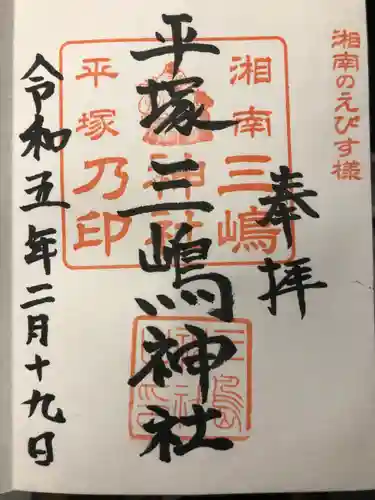 湘南のえびす様
奉拝
平塚三嶋神社
令和五年二月十九日
湘南三嶋
神社
平塚乃印